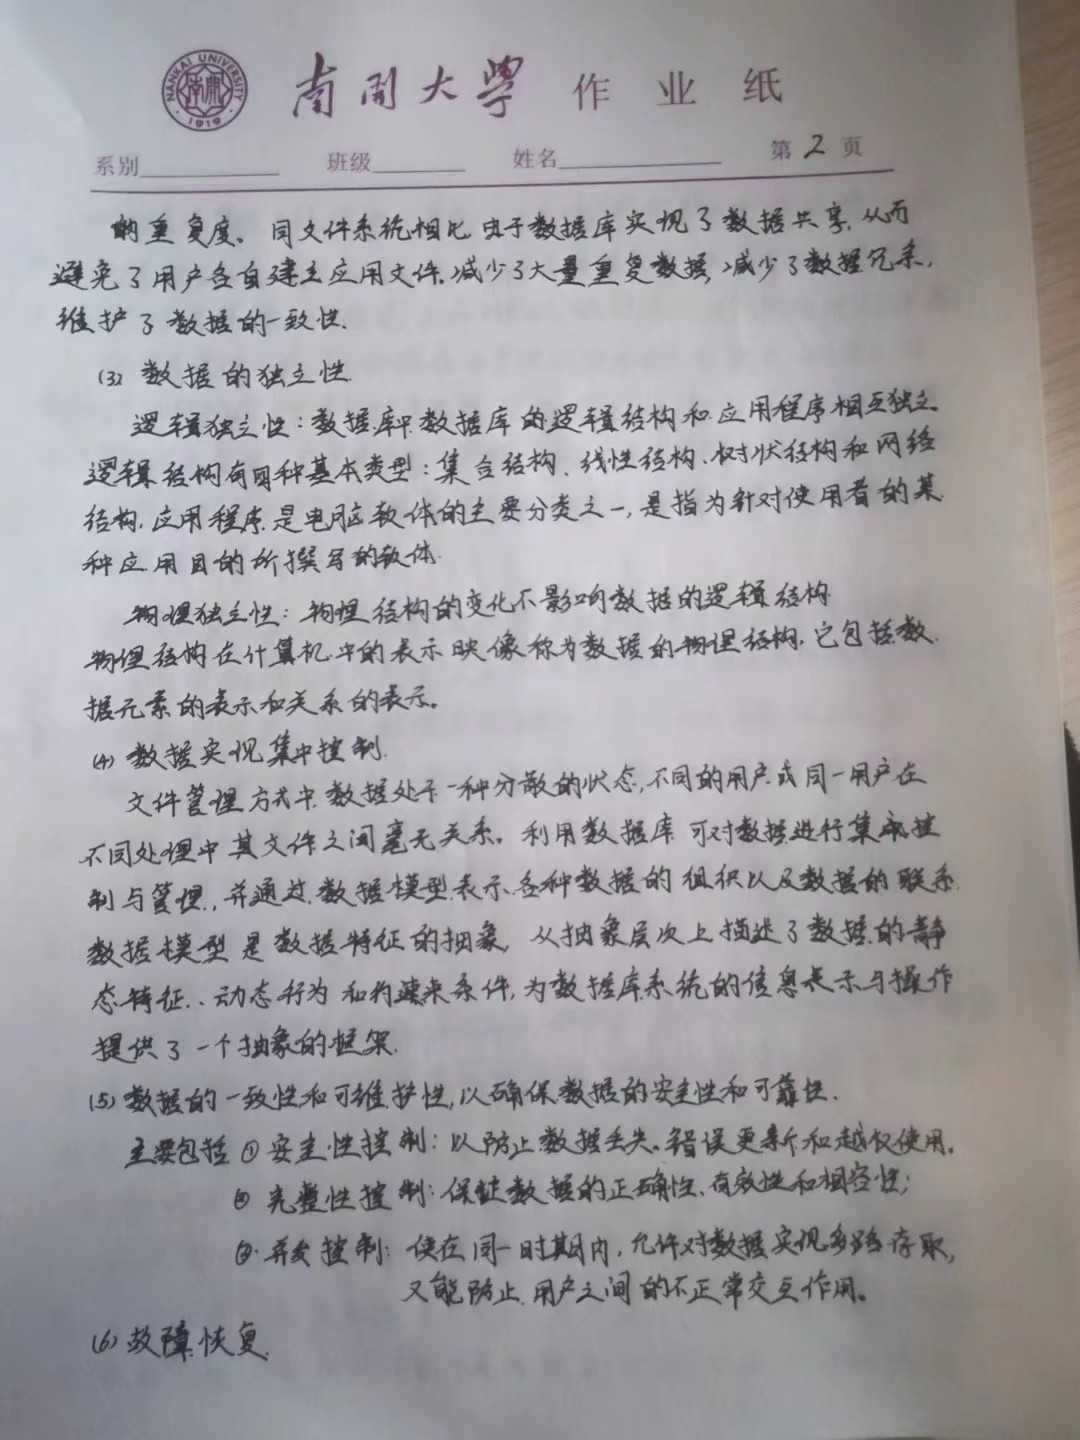 NANKAI UNIVERSITY
1919
南开大学 作业纸
系别 班级 姓名 第2页
的重复度。同文件系统相比,由于数据库实现了数据共享,从而
避免了用户各自建立应用文件,减少了大量重复数据,减少了数据冗余,
维护了数据的一致性.
(3) 数据的独立性.
逻辑独立性:数据库中数据库的逻辑结构和应用程序相互独立。
逻辑结构有四种基本类型:集合结构、线性结构、树状结构和网络
结构.应用程序是电脑软体的主要分类之一,是指为针对使用者的某
种应用目的所撰写的软体.
物理独立性:物理结构的变化不影响数据的逻辑结构.
物理结构在计算机中的表示映像称为数据的物理结构,它包括数
据元素的表示和关系的表示。
(4) 数据实现集中控制.
文件管理方式中,数据处于一种分散的状态,不同的用户或同一用户在
不同处理中其文件之间毫无关系。利用数据库可对数据进行集中控
制与管理,并通过数据模型表示各种数据的组织以及数据的联系.
数据模型是数据特征的抽象,从抽象层次上描述了数据的静
态特征、动态行为和约束条件,为数据库系统的信息表示与操作
提供了一个抽象的框架.
(5) 数据的一致性和可维护性,以确保数据的安全性和可靠性.
主要包括 ① 安全性控制:以防止数据丢失、错误更新和越权使用。
② 完整性控制:保证数据的正确性、有效性和相容性;
③ 并发控制:使在同一时期内,允许对数据实现多路存取,
又能防止用户之间的不正常交互作用。
(6) 故障恢复.